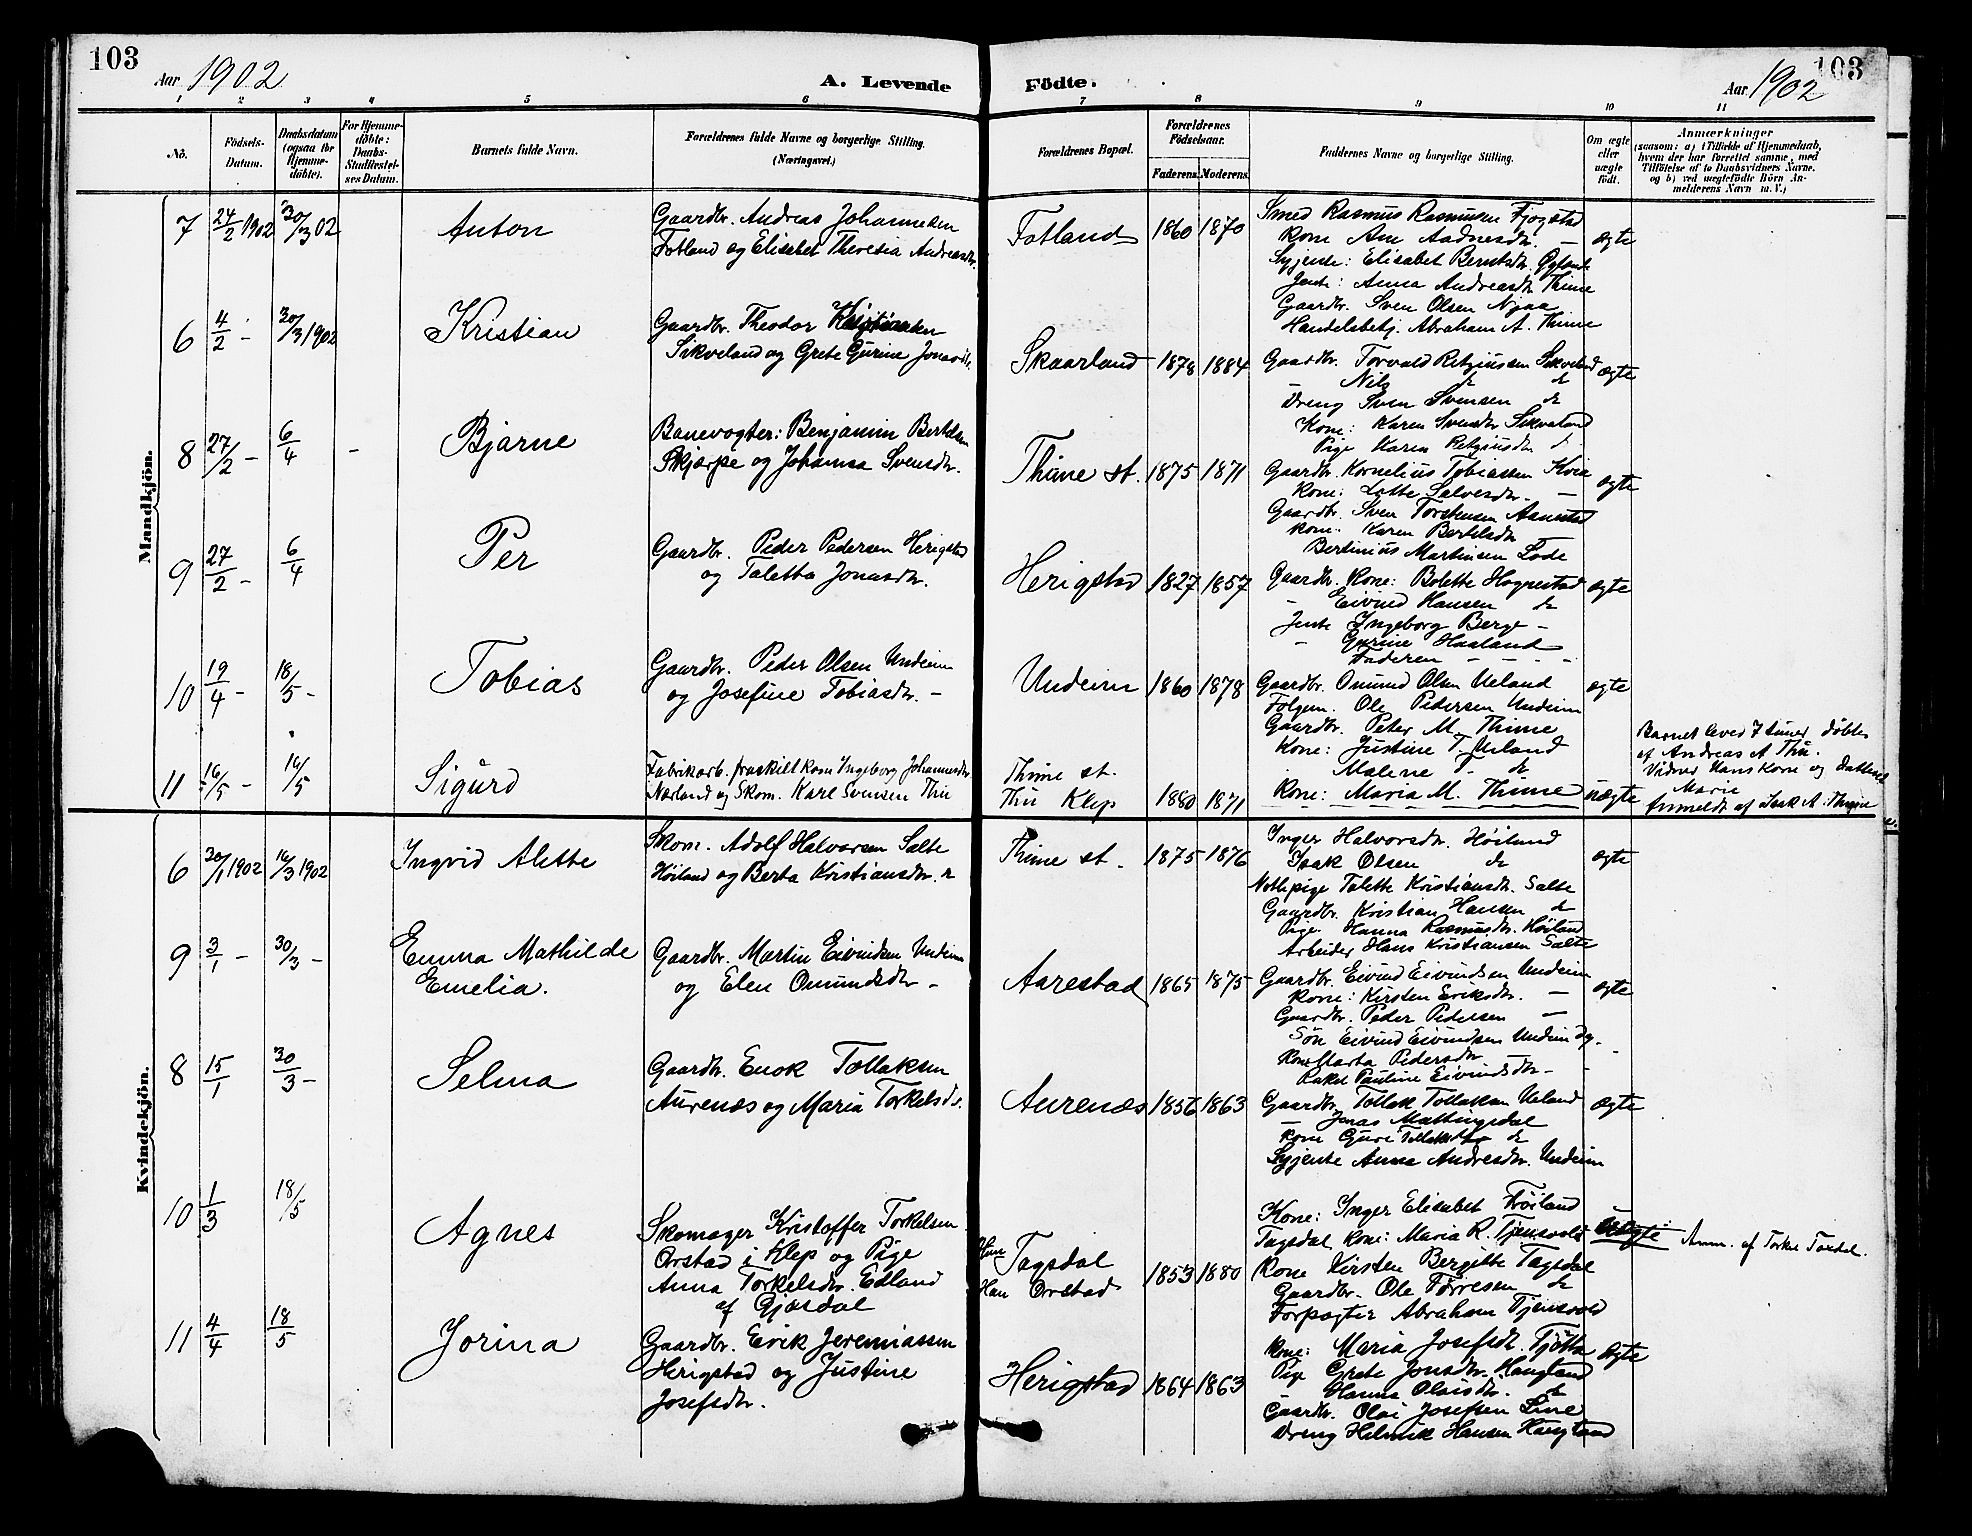 103
Aar 1902
A. Levende
Födte.
Aar 1902
103
1 2 3 4 5 6 7 8 9 10 11
Nô.
Födsels-
Datum.
Daabsdatum
(ogsaa for
Hjemme-
döbte).
For Hjemme-
döbte:
Daabs-
Stadfæstel-
ses Datum.
Barnets fulde Navn.
Forældrenes fulde Navne og borgerlige Stilling.
(Næringsvei.)
Forældrenes Bopæl.
Forældrenes
Födselsaar.
Faderens. Moderens.
Faddernes Navne og borgerlige Stilling.
Om ægte
eller
uægte
födt.
Anmærkninger
(saasom: a) i Tilfælde af Hjemmedaab,
hvem der har forrettet samme, med
Tilföielse af to Daabsvidners Navne,
og b) ved uægtefödte Börn An-
melderens Navn m. V.)
Mandkjön.
7 24/2 1902 30/3 02 Anton
Gaardbr. Andreas Johannesen
Fotland og Elisabet Theresia Andreasdtr.
Fotland 1860 1870
Smed Rasmus Rasmussen Fjogstad
Kone Ane Aadnesdtr. —
Syjente: Elisabet Berntsdtr. Öyland
Jente: Anna Andreasdtr Thime
Gaardbr. Sven Olsen Njaa
Handelsbetj. Abraham A. Thime
ægte
6 4/2 — 30/3 1902 Kristian
Gaardbr. Theodor Kristiansen
Sikveland og Grete Gurine Jonasdtr.
Skaarland 1878 1884
Gaardbr. Torvald Retziussen Sikveland
Nils do do
Dreng Sven Svensen do
Kone: Karen Svensdtr Sikveland
Pige Karen Retziusdtr do
ægte
8 27/2 — 6/4 — Bjarne
Banevogter: Benjamin Bertelsen
Skjærpe og Johanna Svensdtr.
Thime st. 1875 1871
Gaardbr. Kornelius Tobiassen Kvia
Kone: Lotte Salvesdtr. —
Gaardbr. Sven Torstensen Aanestad
Kone: Karen Bertelsdtr
Bertinius Martinsen Lode
ægte
9 27/2 — 6/4 Per
Gaardbr. Peder Pedersen Herigstad
og Taletta Jonasdtr.
Herigstad 1827 1857
Gaardbr. Kone: Bolette Hognestad
— Eivind Hansen do
Jente Ingeborg Berge —
— Gurine Haaland
Faderen — — —
ægte
10 19/4 — 18/5 — Tobias
Gaardbr. Peder Olsen Undeim
og Josefine Tobiasdtr. —
Undeim 1860 1878
Gaardbr. Omund Olsen Ueland
Folgem. Ole Pedersen Undeim
Gaardbr. Peter M. Thime
Kone: Justine T. Ueland
Malene T. do
ægte
11 16/5 — 16/5 Sigurd
Fabrikarb. fraskilt kone Ingeborg Johannesdtr
Nærland og Skom. Karl Svensen Thu
Thime st.
Thu Klep 1880 1871
Kone: Maria M. Thime
uægte
Barnet leved 7 timer döbtes
af Andreas A Thu.
Vidner Hans Kone og Datter
Marie
Anmeldt af Isak A. Thime
Kvindekjön.
6 30/1 1902 16/3 1902 Ingvid Alette
Skom. Adolf Halvorsen Salte
Höiland og Berta Kristiansdtr.
Thime st. 1875 1876
Inger Halvorsdtr. Höiland
Isak Olsen do
Pige Talette Kristiansdtr. Salte
Gaardbr. Kristian Hansen do
Pige Hanna Rasmusdtr. Höiland
Arbeider Hans Kristiansen Salte
ægte
9 3/1 — 30/3 — Emma Mathilde
Emelia.
Gaardbr. Martin Eivindsen Undeim
og Elen Omundsdtr —
Aarestad 1865 1875
Gaardbr. Eivind Eivindsen Undeim
Kone: Kirsten Eriksdtr. —
Gaardbr. Peder Pedersen —
Sön Eivind Eivindsen Undeim
Kone Marta Pedersdtr. —
Rakel Pauline Eivindsdtr —
ægte
8 15/1 30/3 — Selma
Gaardbr. Enok Tollaksen
Aurenæs og Maria Torkelsdtr.
Aurenæs 1856 1863
Gaardbr. Tollak Tollaksen Ueland
— Jonas Mattingsdal
Kone Guri Tollaksdtr do
Syjente Anna Andreasdtr. Undeim
ægte
10 1/3 18/5 Agnes
Skomager Kristoffer Torkelsen
Orstad i Klep og Pige
Anna Torkelsdtr. Edland
af Gjæsdal
Hun Tagsdal
Han Orstad 1853 1880
Kone: Inger Elisabet Fröiland
Tagsdal Kone: Maria R. Tjensvold
Kone Kirsten Bergitte Tagsdal
Gaardbr. Ole Törresen do
Forpagter Abraham Tjensvold
Uægte
Anm. af Torkel
11 4/4 18/5 Jorina
Gaardbr. Erik Jeremiassen
Herigstad og Justine
Josefsdtr.
Herigstad 1864 1863
Kone: Maria Josefsdtr. Tjötta
Pige Grete Jonsdtr. Haugland
Hanna Olaisdtr. do
Gaardbr. Olai Josefsen Line
Dreng Helmik Hansen Haugland
ægte